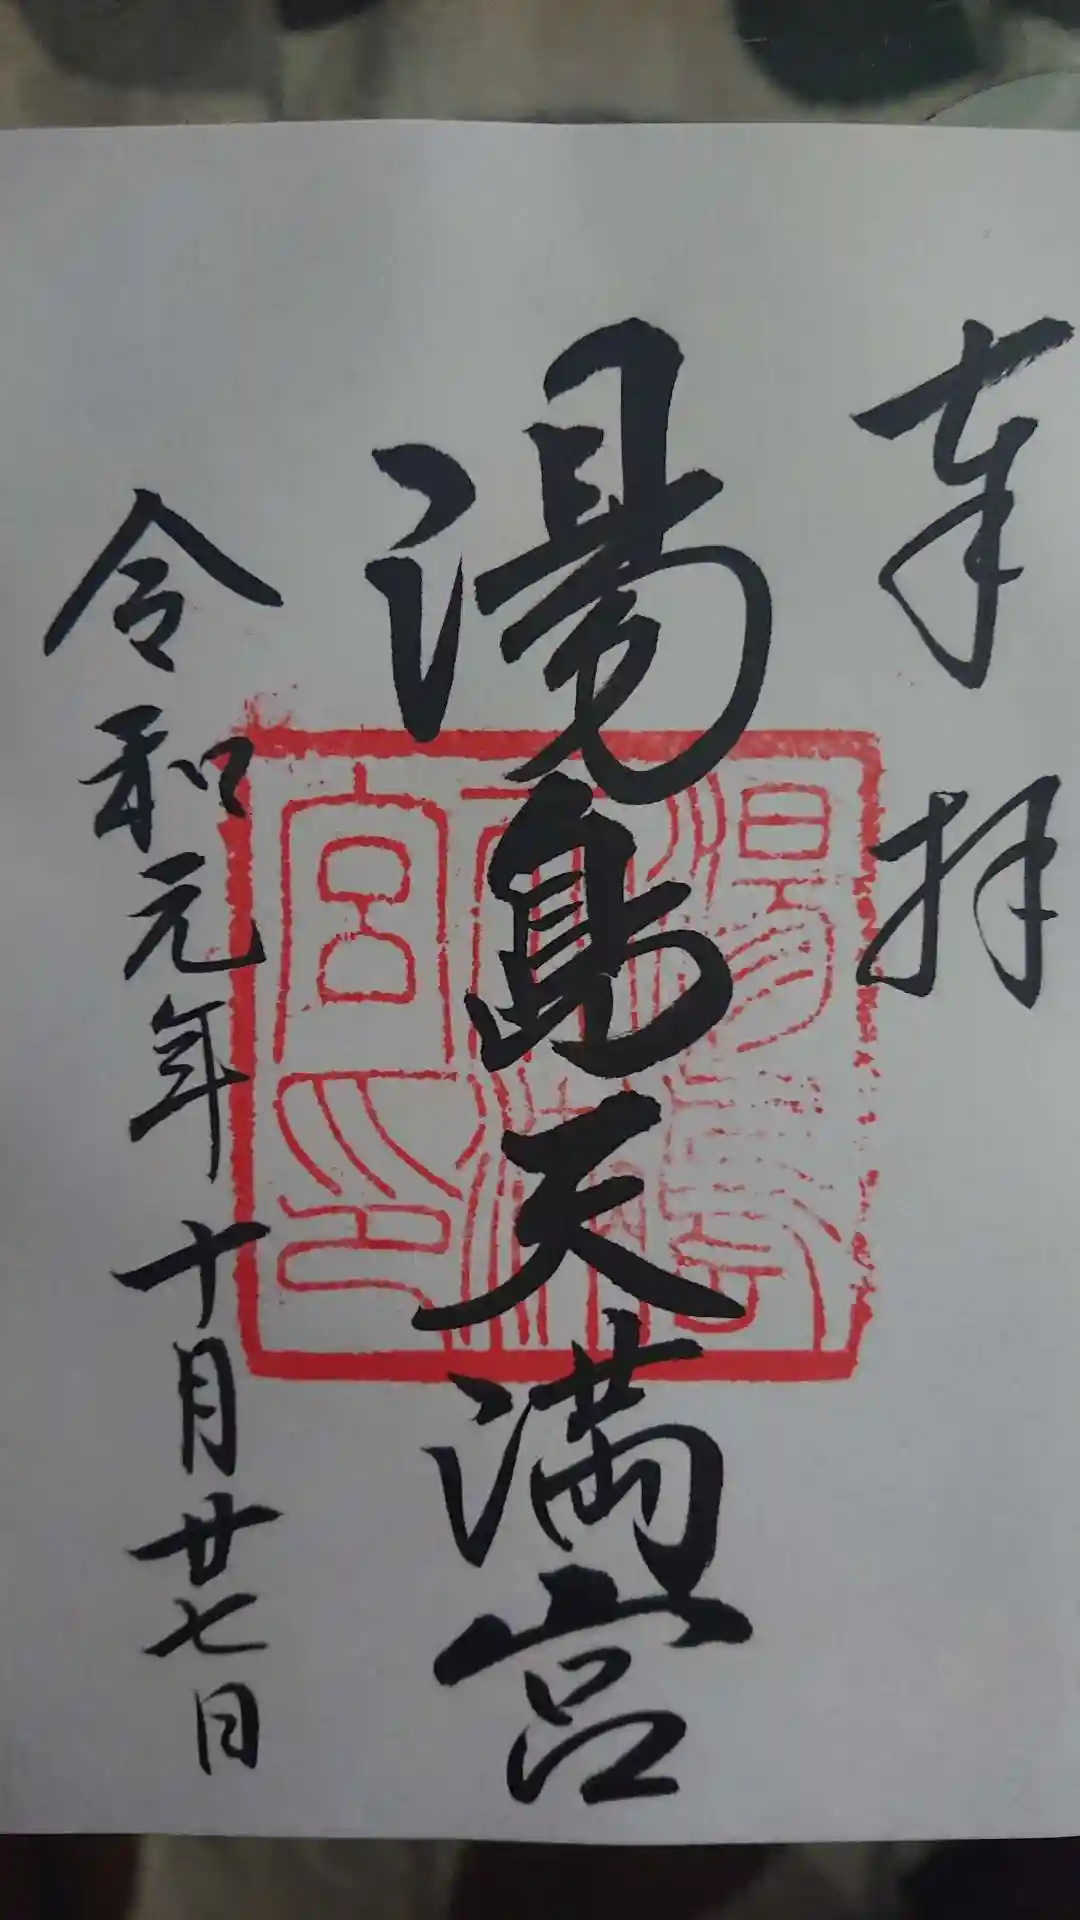 奉拝
湯島天満宮
令和元年十月廿七日
湯島天満宮印